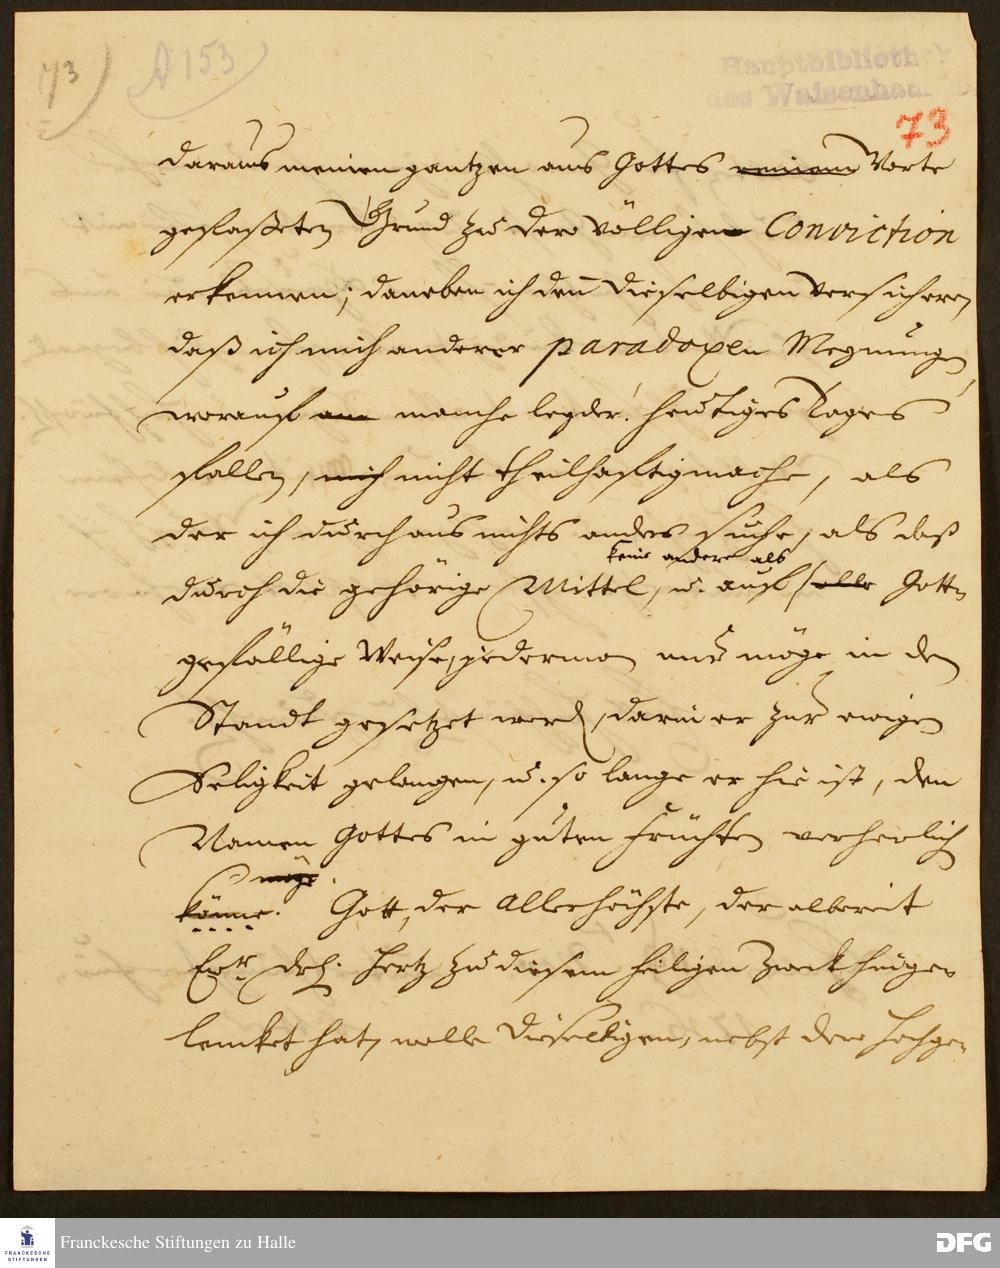 73
A 153
Hauptbibliothek
des Waisenhaus
73
daraus meinen gantzen aus Gottes reinem Worte
gefaßeten Grund zu dero völligen Conviction
erkennen; daneben ich den̄ dieselbigen versichere,
daß ich mich anderer paradoxen Meynungen,
worauf manche leyder! heutiges Tages
fallen, mich nicht theilhaftig mache, als
der ich durchaus nichts anders suche, als daß
keine andere als
durch die gehörige Mittel, u. auf alle Gott
gefällige Weise, jederman nur möge in den
Standt gesetzet werden, darin er zur ewigen
Seligkeit gelangen, u. so lange er hie ist, den
Namen Gottes in guten Früchten verherrlichen
möge
könne. Gott, der Allerhöchste, der albereit
Ew. Hertz zu diesem heiligen Zweck
lencket hat, wolle dieselbigen, nebst dero
Franckesche Stiftungen zu Halle
FRANCKESCHE
STIFTUNGEN
DFG